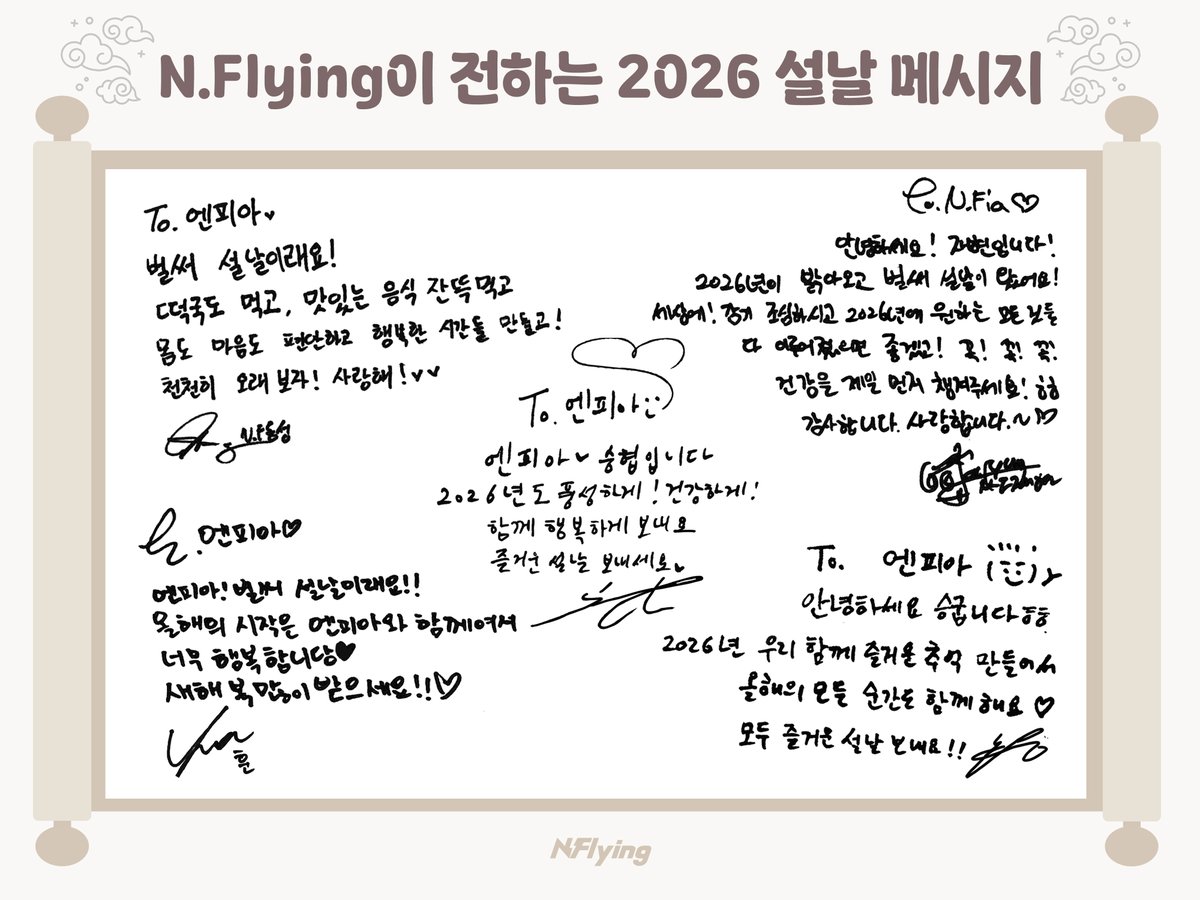 N.Flying이 전하는 2026 설날 메시지
To. 엔피아
벌써 설날이래요!
떡국도 먹고, 맛있는 음식 잔뜩 먹고
몸도 마음도 편안하고 행복한 시간들 만들고!
천천히 오래 보자! 사랑해!
N.F동성
To. N.Fia
안녕하세요! 재현입니다!
2026년이 밝아오고 벌써 설날이 왔어요!
세상에! 감기 조심하시고 2026년에 원하는 모든 것들
다 이루어졌으면 좋겠고! 꼭! 꼭! 꼭!
건강을 제일 먼저 챙겨주세요! ㅎㅎ
감사합니다. 사랑합니다.~
To. 엔피아
엔피아 승협입니다
2026년도 풍성하게! 건강하게!
함께 행복하게 보내요
즐거운 설날 보내세요
To. 엔피아
엔피아! 벌써 설날이래요!!
올해의 시작은 엔피아와 함께여서
너무 행복합니당
새해 복 많이 받으세요!!
훈
To. 엔피아
안녕하세요 승굽니다 ㅎㅎ
2026년 우리 함께 즐거운 추억 만들어서
올해의 모든 순간도 함께해요
모두 즐거운 설날 보내요!!
N.Flying